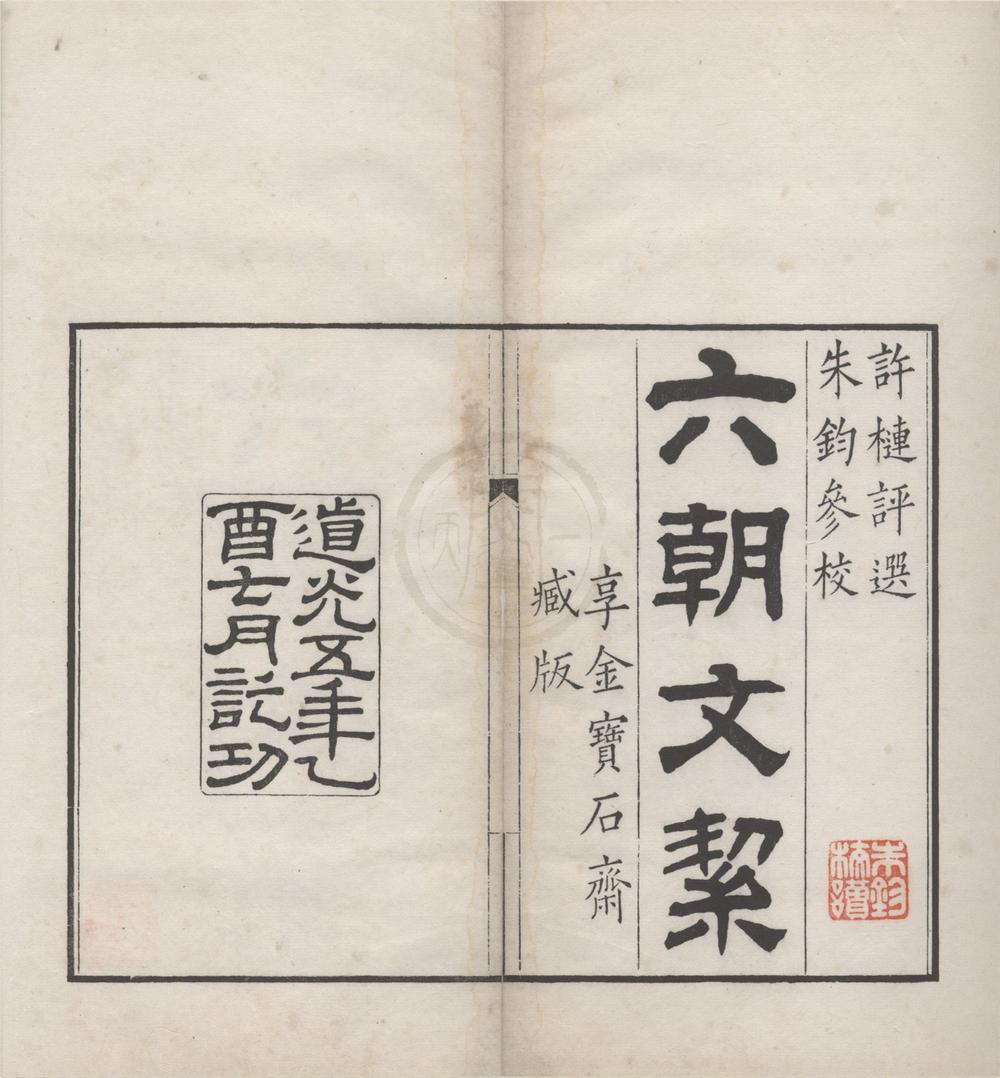 許槤評選
朱鈞參校
六朝文絜
享金寶石齋
臧版
朱鈞
校讀
道光五年乙
酉七月訖功